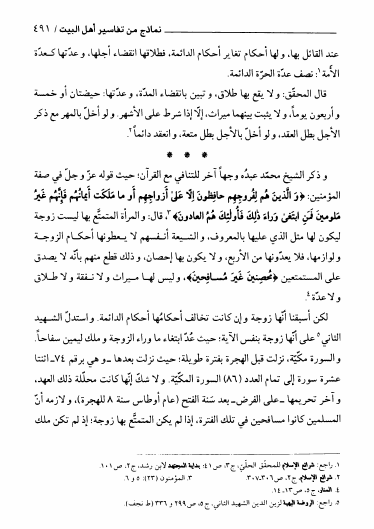 نماذج من تفاسير أهل البيت / ٤٩١
عند القائل بها، ولها أحكام تغاير أحكام الدائمة، فطلاقها انقضاء أجلها، وعدّتها كعدّة
الأمة١: نصف عدّة الحرّة الدائمة.
قال المحقّق: ولا يقع بها طلاق، وتبين بانقضاء المدّة، وعدّتها: حيضتان أو خمسة
وأربعون يوماً، ولا يثبت بينهما ميراث، إلّا إذا شرط على الأشهر. ولو أخلّ بالمهر مع ذكر
الأجل بطل العقد، ولو أخلّ بالأجل بطل متعة، وانعقد دائماً٢.
* * *
وذكر الشيخ محمّد عبده وجهاً آخر للتنافي مع القرآن؛ حيث قوله عزّ وجلّ في صفة
المؤمنين: ﴿وَالَّذينَ هُم لِفُروجِهِم حافِظونَ إلاّ عَلىٰ أزواجِهِم أو ما مَلَكَت أيمانُهُم فَإنَّهُم غَيرُ
مَلومينَ فَمَنِ ابتَغىٰ وَراءَ ذٰلِكَ فَأُولٰئِكَ هُمُ العادونَ﴾٣، قال: والمرأة المتمتَّع بها ليست زوجة
ليكون لها مثل الذي عليها بالمعروف، والشيعة أنفسهم لا يعطونها أحكام الزوجية
ولوازمها، فلا يعدّونها من الأربع، ولا يكون بها إحصان، وذلك قطع منهم بأنّه لا يصدق
على المستمتعين ﴿مُحصِنينَ غَيرَ مُسافِحينَ﴾، وليس لها ميراث ولا نفقة ولا طلاق
ولا عدّة٤.
لكن أسبقنا أنّها زوجة وإن كانت تخالف أحكامُها أحكام الدائمة. واستدلّ الشهيد
الثاني٥ على أنّها زوجة بنفس الآية؛ حيث عُدّ ابتغاء ما وراء الزوجة وملك ليمين سفاحاً.
والسورة مكّيّة، نزلت قبل الهجرة بفترة طويلة؛ حيث نزلت بعدها ـ وهي برقم ٧٤ـ اثنتا
عشرة سورة إلى تمام العدد (٨٦) السورة المكّيّة. ولا شكّ أنّها كانت محلّلة ذلك العهد،
وآخر تحريمها ـ على الفرض ـ بعد سنة الفتح (عام أوطاس سنة ٨ للهجرة)، ولازمه أنّ
المسلمين كانوا مسافحين في تلك الفترة، إذا لم يكن المتمتَّع بها زوجة؛ إذ لم تكن ملك
١. راجع: شرائع الإسلام للمحقّق الحلّي، ج٣، ص ٤١؛ بداية المجتهد لابن رشد، ج٢، ص ١٠١.
٢. شرائع الإسلام، ج٢، ص ٣٠٦ـ٣٠٧.
٣. المؤمنون (٢٣): ٥ و ٦.
٤. المنار، ج٥، ص ١٣ـ١٤.
٥. راجع: الروضة البهية لزين الدين الشهيد الثاني، ج٥، ص ٢٩٩ و ٣٣٦ (ط نجف).